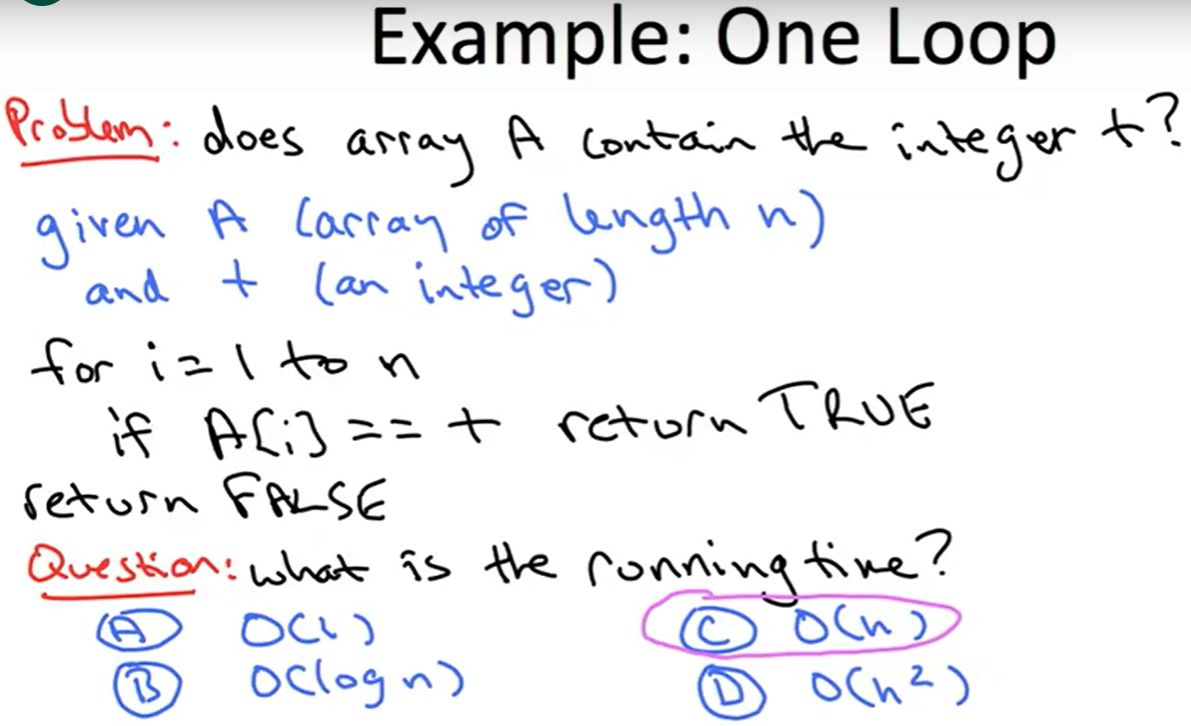 Example: One Loop
Problem: does array A contain the integer t?
given A (array of length n)
and t (an integer)
for i = 1 to n
if A[i] == t return TRUE
return FALSE
Question: what is the running time?
(A) O(1) (C) O(n)
(B) O(log n) (D) O(n²)